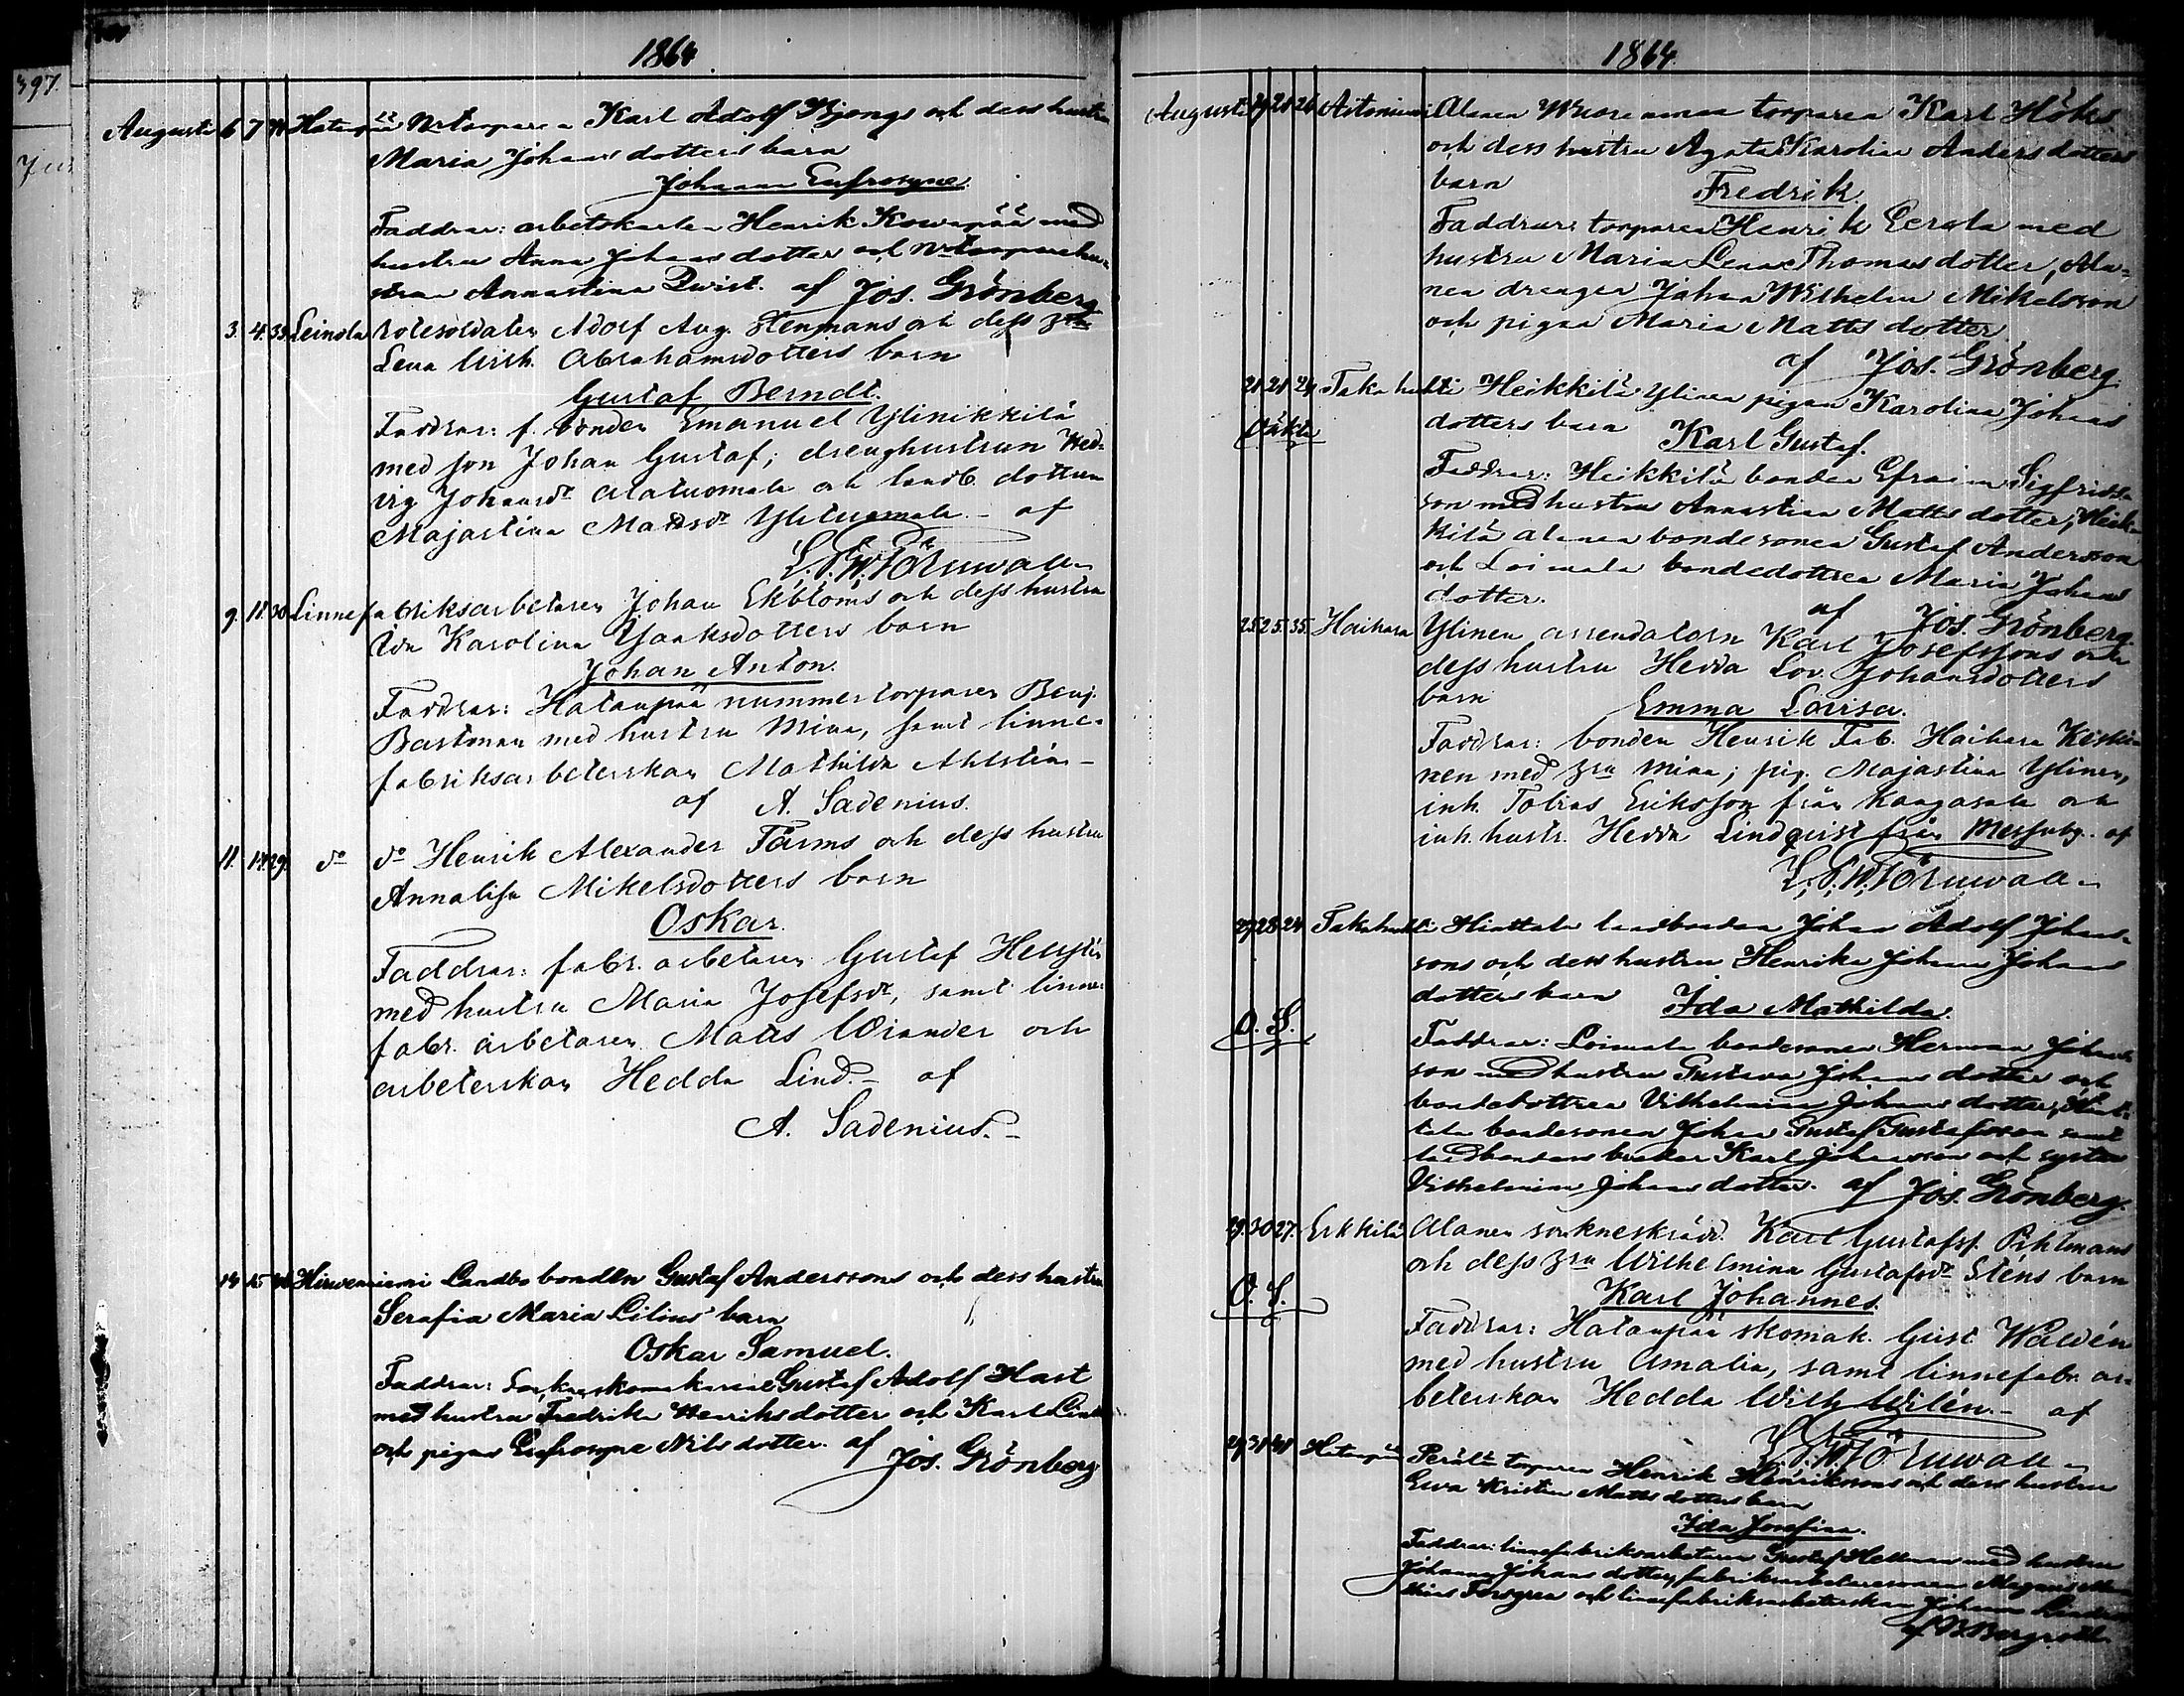 397.
1864
Augusti 6 7 Hatanpää Nrtorparen Karl Adolf Bjongs och dess hustru
Maria Johansdotters barn
Johanna Eufrosyne.
Faddrar: arbetskarlen Henrik Kowapää med
hustru Anna Johansdotter och Nrtorparehu-
strun Annastina Qvist. af Jos. Grönberg
3. 4. 33. Leinola Rotesoldaten Adolf Aug. Stenmans och dess
Lena Ulrik. Abrahamsdotters barn
Gustaf Berndt.
Faddrar: f. bonden Emanuel Ylinikkilä
med son Johan Gustaf; drenghustrun Hed-
vig Johansdr Alatuomala och landb. dottren
Majastina Mattsdr Ylituomala - af
L.P.W. Törnwall
9. 11. 30. Linnefabriksarbetaren Johan Ekbloms och dess hustru
Ida Karolina Jaaksdotters barn
Johan Anton.
Faddrar: Hatanpää nummertorparen Benj.
Bastman med hustru Mina, samt linne-
fabriksarbeterskan Mathilda Ahlstén -
af A. Sadenius.
11. 14. 29. do do Henrik Alexander Farms och dess hustru
Annalisa Mikelsdotters barn
Oskar.
Faddrar: fabr. arbetaren Gustaf Hellstén
med hustru Maria Josefsdr, samt linne-
fabr. arbetaren Matts Wirander och
arbeterskan Hedda Lind. - af
A. Sadenius. -
14 15 Hirweniemi Landbobonden Gustaf Anderssons och dess hustru
Serafia Maria Lilius barn
Oskar Samuel.
Faddrar: Sockneskomakaren Gustaf Adolf Hast
med hustru Fredrika Henriksdotter och Karl
och pigan Eufrosyne Nilsdotter. af Jos. Grönberg
1864
Augusti 19 21 26 Aitoniemi Alanen torparen Karl Höks
och dess hustru Agata Karolina Andersdotters
barn Fredrik.
Faddrar: torparen Henrik Eerola med
hustru Maria Lena Thomasdotter, Ala-
nen drengen Johan Wilhelm Mikelsson
och pigan Maria Mattsdotter
af Jos. Grönberg
21 21 24 Takahuhti Heikkilä Ylinen pigan Karolina Johans
Oäkta dotters barn Karl Gustaf.
Faddrar: Heikkilä bonden Efraim Sigfrids-
son med hustru Annastina Mattsdotter, Heik-
kilä Alanen bondesonen Gustaf Andersson
och Loimala bondedottren Maria Johans
dotter. af Jos. Grönberg
25 25 35. Haihara Ylinen arrendatorn Karl Josefssons och
dess hustru Hedda Lov. Johansdotters
barn Emma Lovisa.
Faddrar: bonden Henrik Fab. Haihara Keski-
nen med hru Mina; pig. Majastina Ylinen,
inh. Tobias Eriksson från Kangasala och
inh. hustr. Hedda Lindqvist från Messuby. af
L.P.W. Törnwall
27 28 24 Takahuhti Hiottala landbonden Johan Adolf Johans-
sons och dess hustru Henrika Johanna Johans
dotters barn Ida Mathilda.
O. S. Faddrar: Loimala bondesonen Herman Johans
son med hustru Gustava Johansdotter och
bondedottren Vilhelmina Johansdotter, Hiot-
tala bondesonen Johan Gustaf Gustafsson samt
landbondens broder Karl Johansson och syster
Vilhelmina Johansdotter. af Jos. Grönberg.
29. 30 27. Erkkilä Alanen sockneskrädd. Karl Gustafss. Pihlmans
och dess hru Wilhelmina Gustafsdr Stens barn
O. S. Karl Johannes.
Faddrar: Hatanpää skomak. Gust. Waldén
med hustru Amalia, samt linnefabr. ar-
beterskan Hedda Wilh. Wilén. - af
L.P.W. Törnwall
29 31 Hatanpää Perälä torparen Henrik Henrikssons och dess hustru
Ewa Kristina Mattsdotters barn
Ida Josefina.
Faddrar: linnefabriksarbetaren Gustaf Hellman med hustru
Johanna Johansdotter, fabriksarbetaresonen Magnus
Forsgren och linnefabriksarbeterskan Johanna
af B. Bergroth